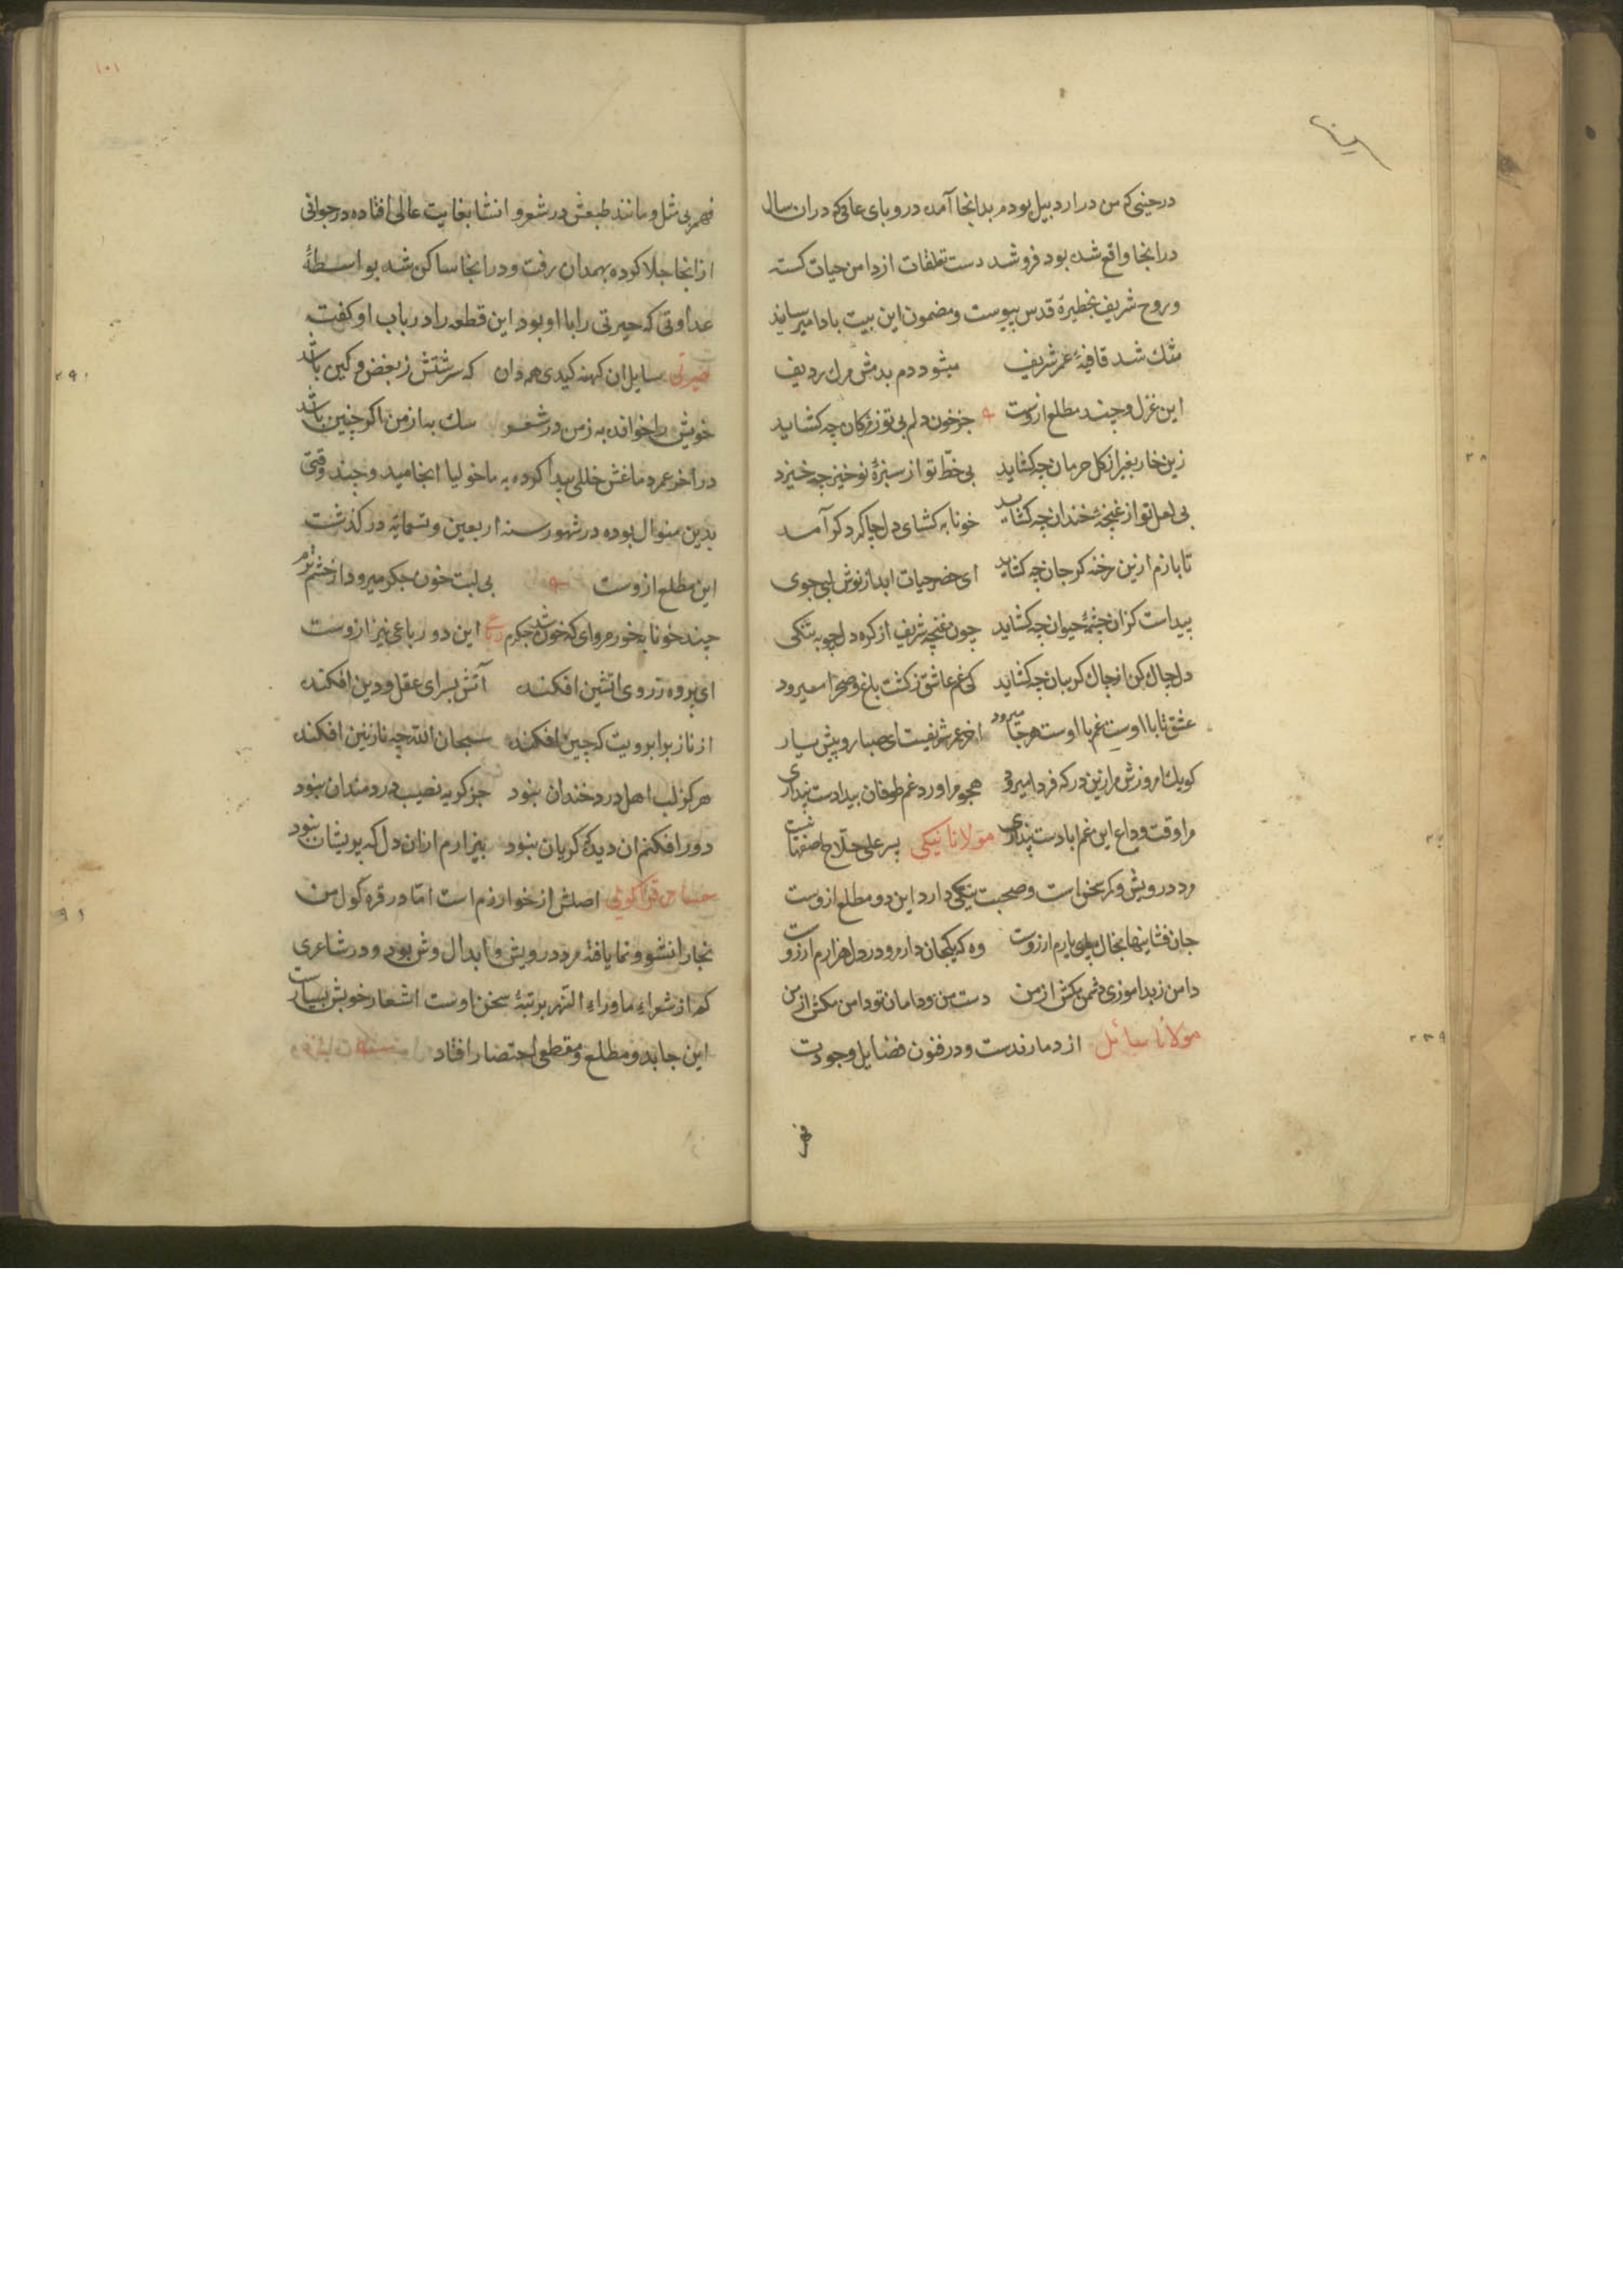 درحینی که من در اردبیل بودم بدانجا آمده در وبای عامی که دران سال
درانجا واقع شده بود فرو شد دست تعلقات از دامن حیات کسته
و روح شریف بخطیرهٔ قدس پیوست و مضمون این بیت بادا میرساند
تنک شد قافیهٔ عمر شریف میشود دم بدمش مرک ردیف
این غزل و چند مطلع ازوست جز خون دلم بی تو ز مژکان چه کشاید
زین خار بغیر از کل حرمان چه کشاید بی خطّ تو از سبزهٔ نوخیز چه خیزد
بی لعل تو از غنچهٔ خندان چه کشاید خونابه کشای دل چاکم کرد کر آمد
تا بازم ازین رخنه کر جان چه کشاید ای خضر حیات ابد از نوش لبی جوی
پیداست کزان چشمهٔ حیوان چه کشاید چون غنچه شریف از کره دل چو به تنکی
دل چاک کن از چاک کریبان چه کشاید کی غم عاشق ز کشت باغ و صحرا میرود
عشق تا با اوست غم با اوست هرجا میرود اخر عمر شریفست ای صبا رو پیش یار
کو بیک امروزش مران زین در که فردا میرود هجوم اورد غم طوفان بیدادست پنداری
مرا وقت وداع این غم ابادست پنداری مولانا نیکی پسر علی حلّاج اصفهانیست
مرد درویش و کم سخن است و صحبت نیکی دارد این دو مطلع ازوست
جان فشانیها بخاک پای یارم ارزوست وه که یکجان دارم و در دل هزارم ارزوست
دامن ز بداموزی دشمن مکش از من دست من و دامان تو دامن مکش از من
مولانا سائل از دماوندست و در فنون فضایل وجودیست
فهم
فهم بی مثل و مانند طبعش در شعر و انشا بغایت عالی افتاده در جوانی
ازانجا جلا کرده بهمدان رفت و درانجا ساکن شد بواسطهٔ
عداوتی که حیرتی را با او بود این قطعه را در باب او کفت
حیرتی سایل ان کهنه کیدی همدان که سرشتش ز بغض و کین باشد
خویش را خوانده به ز من در شعر سک به از من اکر چنین باشد
در اخر عمر دماغش خللی پیدا کرده به ماخولیا انجامید و چند وقتی
بدین منوال بوده در شهور سنه اربعین و تسمائه در کذشت
این مطلع ازوست بی لبت خون جکر میرود از چشم ترم
چند خونابه خورم وای که خون شد جکرم این دو رباعی نیز ازوست
ای پرده ز روی اتشین افکنده آتش بسرای عقل و دین افکنده
از ناز بر ابرویت که چین افکنده سبحان الله چه نازنین افکنده
هرکز لب اهل درد خندان نبود جز کریه نصیب دردمندان نبود
دور افکنم ان دیده که کریان نبود بیزارم ازان دل که پریشان نبود
قراکولی اصلش از خوارزم است امّا در قره کول من
بخارا نشو و نما یافته مرد درویش و ابدال وش بود و در شاعری
کم از شعراء ماوراء النهر برتبهٔ سخن اوست اشعار خوبش بسیارست
این جا بدو مطلع و مقطعی اختصار افتاد